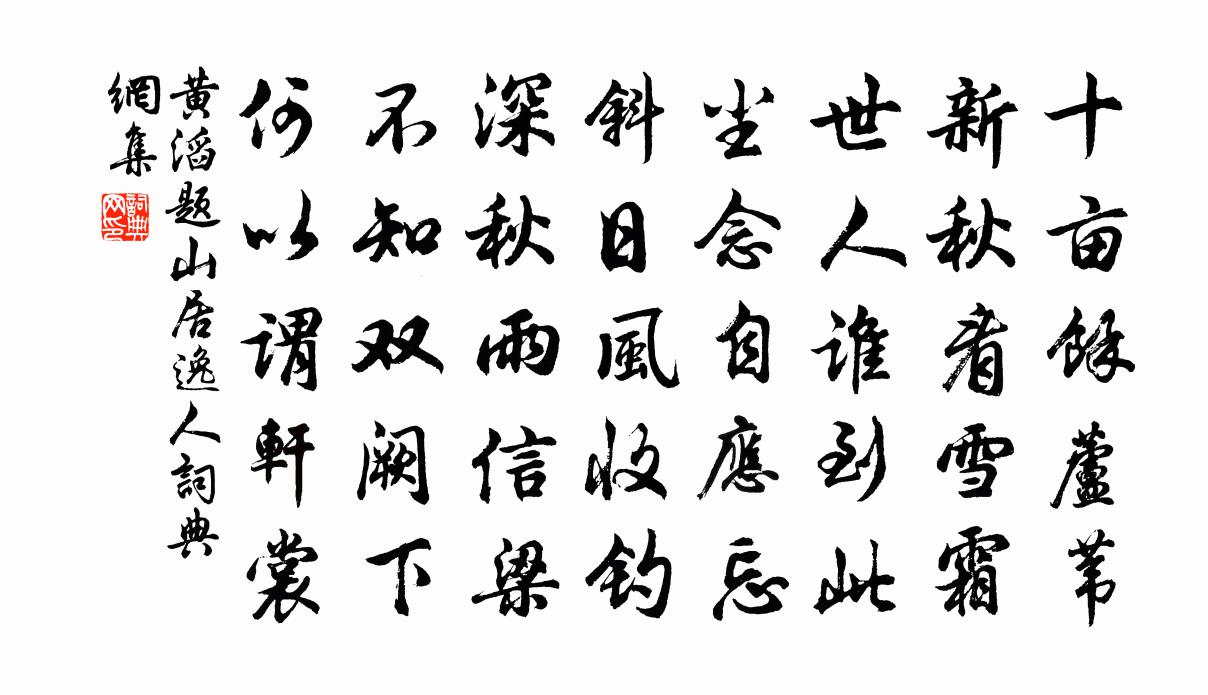 十亩餘蘆苇
新秋看雪霜
世人誰到此
尘念自應忘
斜日風收钓
深秋雨信梁
不知双阙下
何以謂軒裳
黄滔题山居逸人詞典
網集
詞典网印